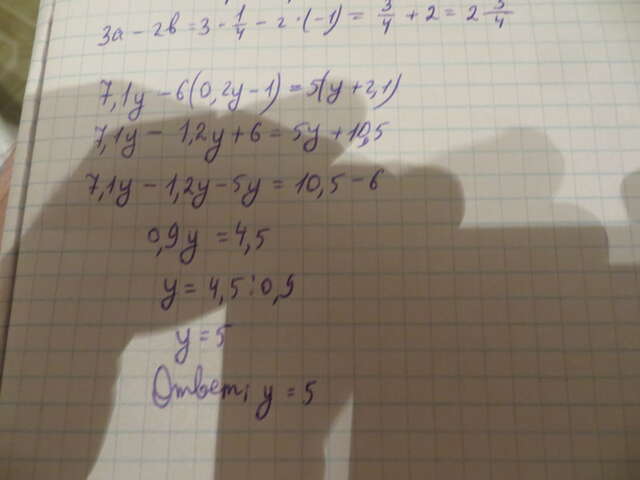 3a - 2в = 3 · 1/4 - 2 · (-1) = 3/4 + 2 = 2 3/4
7,1y - 6(0,2y - 1) = 5(y + 2,1)
7,1y - 1,2y + 6 = 5y + 10,5
7,1y - 1,2y - 5y = 10,5 - 6
0,9y = 4,5
y = 4,5 : 0,9
y = 5
Ответ: y = 5